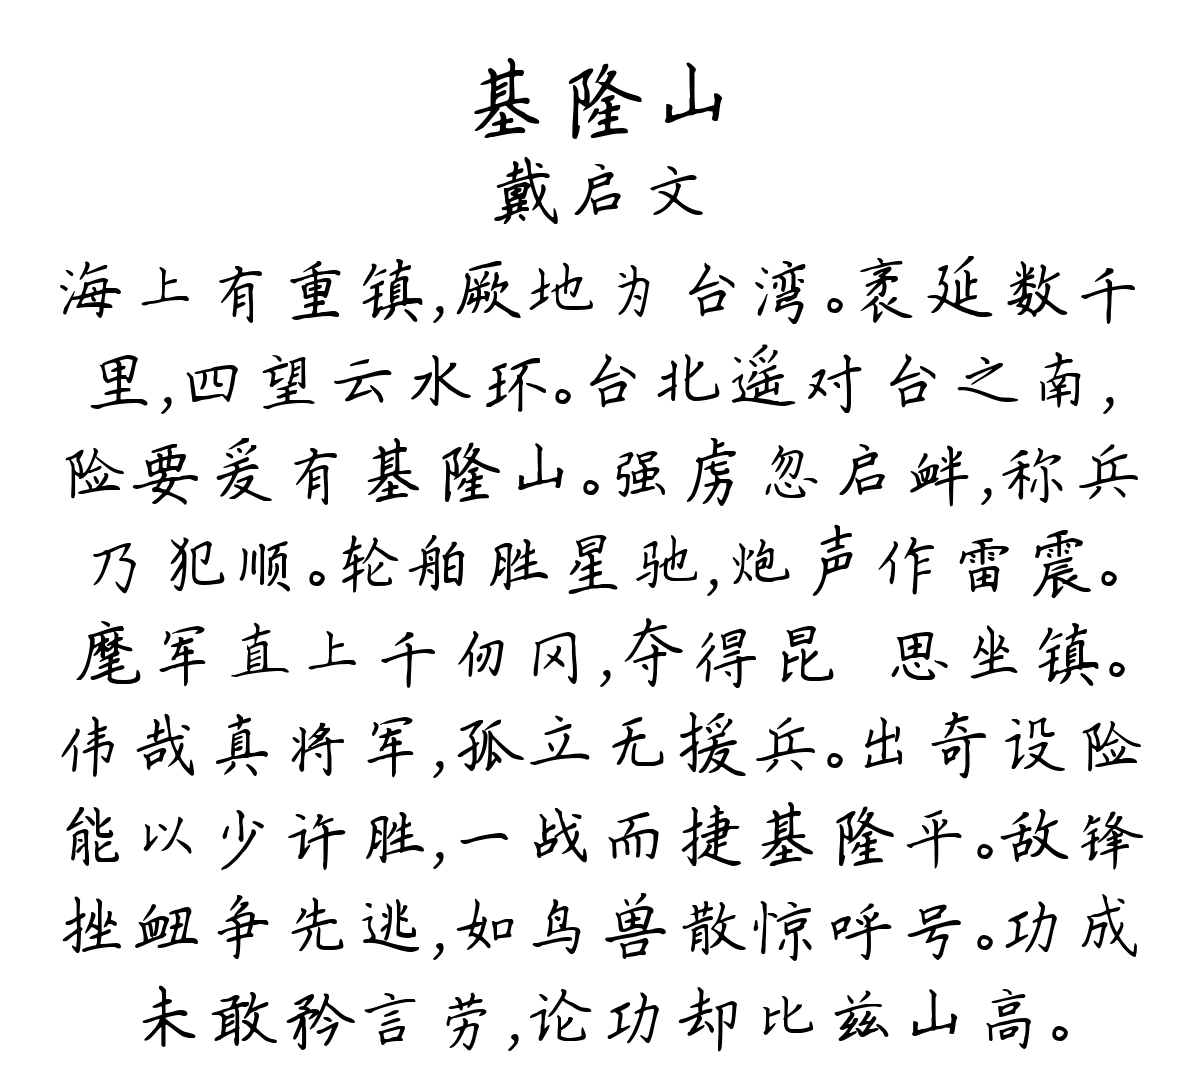 基隆山
戴启文
海上有重镇,厥地为台湾。袤延数千
里,四望云水环。台北遥对台之南,
险要爰有基隆山。强虏忽启衅,称兵
乃犯顺。轮舶胜星驰,炮声作雷震。
麾军直上千仞冈,夺得昆 思坐镇。
伟哉真将军,孤立无援兵。出奇设险
能以少许胜,一战而捷基隆平。敌锋
挫衄争先逃,如鸟兽散惊呼号。功成
未敢矜言劳,论功却比兹山高。